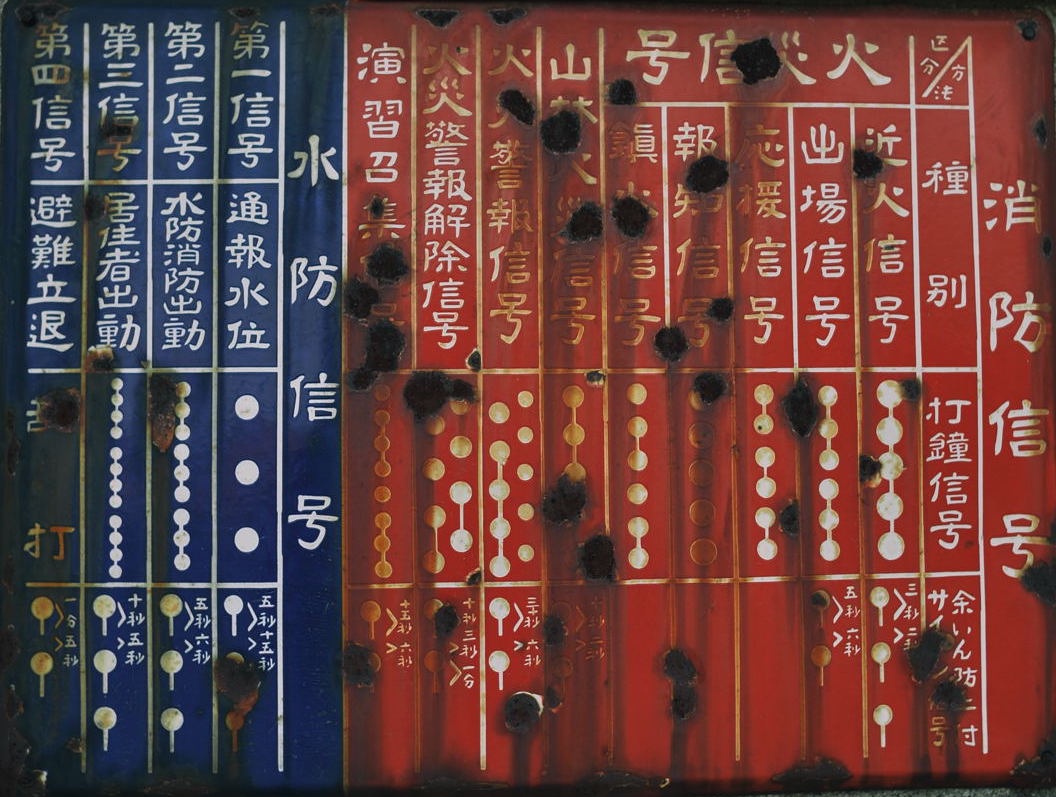 消防信号
区分/方法
種別
打鐘信号
余いん防止付
サイレン信号
火災信号
近火信号
三秒
二秒
出場信号
五秒
六秒
応援信号
報知信号
鎮火信号
山林火災信号
火災警報信号
三十秒
六秒
火災警報解除信号
十秒
一分
三秒
演習召集信号
十五秒
六秒
水防信号
第一信号
通報水位
五秒
十五秒
第二信号
水防消防出動
五秒
六秒
第三信号
居住者出動
十秒
五秒
第四信号
避難立退
乱打
一分
五秒